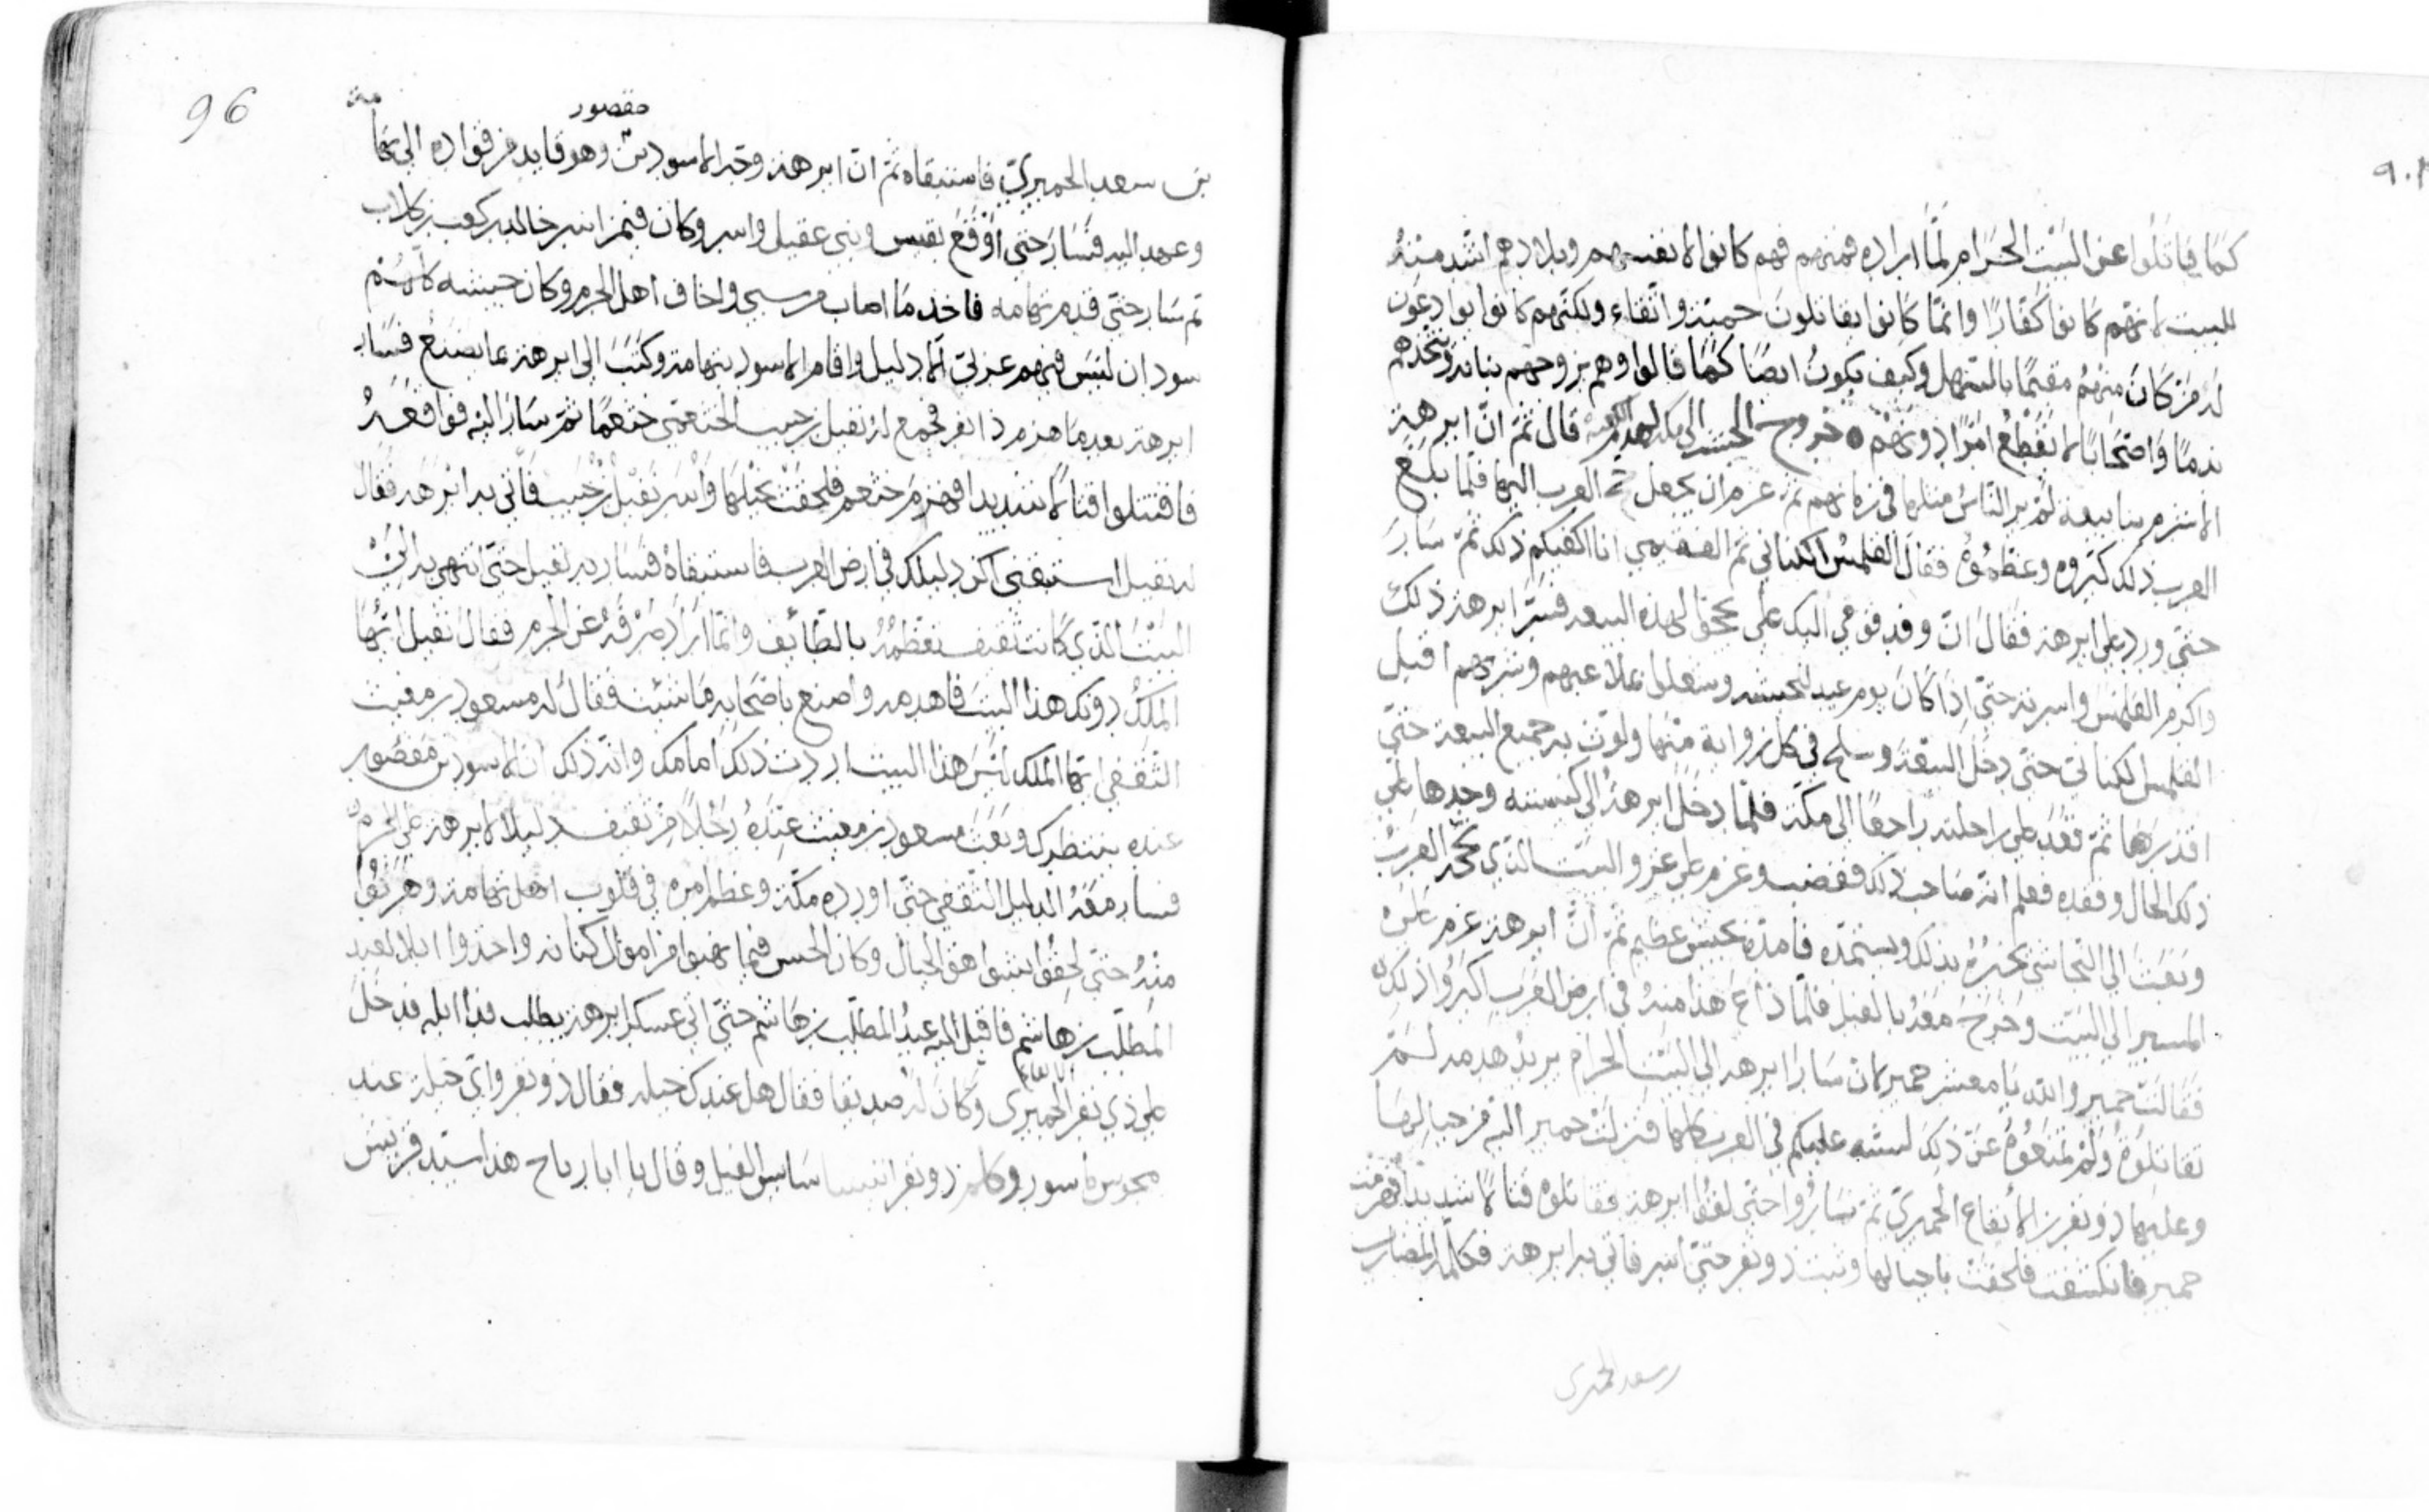 كما قاتلوا عن البيت الحرام لما اراده فمنهم فهم كانوا لانفسهم وبلادهم اشد منه
للبيت لانهم كانوا كفارا وانما كانوا يقاتلون حمية واتقاء ولكنهم كانوا يوادعون
له من كان منهم مقيما بالسهل وكيف يكون ايضا كما قالوا وهم يزوجهم بناته ويتخذهم
ندما واصحابا لا يقطع امرا دونهم خروج الحبشة الى مكة لهدم الكعبة قال ثم ان ابرهة
الاشرم بنا بيعة لم ير الناس مثلها في زمانهم ثم عزم ان يجعل حج العرب اليها فلما بلغ
العرب ذلك كبروه وعظموه فقال القلمس الكناني ثم الفقيمي انا اكفيكم ذلك ثم سار
حتى ورد على ابرهة فقال ان وفد قومي اليك على بحجوا لهذه البيعة فسر ابرهة ذلك
واكرم القلمس واسر به حتى اذا كان يوم عيد للحبشة وشغلوا بملاعبهم وشربهم اقبل
القلمس الكناني حتى دخل البيعة وسلح في كل زواية منها ولوث به جميع البيعة حتى
اقذرها ثم قعد على راحلته راجعا الى مكة فلما دخل ابرهة الى كنيسته وجدها على
ذلك الحال وفقده فعلم انه صاحب ذلك فغضب وعزم على غزو البيت الذي تحجه العرب
وبعث الى النجاشي يخبره بذلك ويستمده فامده بجيش عظيم ثم ان ابرهة عزم على
المسير الى البيت وخرج معه بالفيل فلما ذاع هذا منه في ارض العرب اكبروا ذلك
فقالت حمير والله يا معشر حمير لان سار ابرهة الى البيت الحرام يريد هدمه لم
تقاتلوه ولم تمنعوه عن ذلك لسبة عليكم في العرب كلها فنزلت حمير اليه من جبالها
وعليها ذو نفر الحميري ثم ساروا حتى لقوا ابرهة فقاتلوه قتالا شديدا فهزمت
حمير فانكشفت فلحقت باجبالها وثبت ذو نفر حتى اسر فاتي به ابرهة فكلمه
بن سعد الحميري
96
مقصور
بن سعد الحميري فاستبقاه ثم ان ابرهة وجه الاسود بن وهو قايد من قواده الى تها مة
وعهد اليه فسار حتى اوقع بقيس وبني عقيل واسر وكان فيمن اسر خالد بن كعب بن كلاب
ثم سار حتى قدم تهامه فاخذ ما اصاب من سبي واخاف اهل الحرم وكان جيشه كلهم
سودان ليس فيهم عربي الا دليل واقام الاسود بتهامة وكتب الى ابرهة بما يصنع فسار
ابرهة بعد ما هزم ذا نفر فجمع له نفيل بن حبيب الخثعمي خثعما ثم سار اليه فواقعه
فاقتتلوا قتالا شديدا فهزم خثعم فلحقت بجبلها واسر نفيل بن حبيب فاتي به ابرهة فقال
له نفيل استبقني اكن دليلك في ارض العرب فاستبقاه فسار به نفيل حتى انتهى به الى
البيت الذي كانت ثقيف تعظمه بالطائف وانما اراد صرفه عن الحرم فقال نفيل ايها
الملك دونك هذا البيت فاهدمه واصنع باصحابه ما شئت فقال له مسعود بن مغيث
الثقفي ايها الملك ليس هذا البيت اردت ذلك امامك وانه ذلك ان الاسود بن مقصور
عنده ينتظرك وبعث مسعود بن مغيث عنده رجلا من ثقيف دليلا لابرهة على الحرم
فسار معه الدليل الثقفي حتى اورده مكة وعظم امره في قلوب اهل تهامة وهربوا
منه حتى لحقوا بشواهق الجبال وكان الحبس فيما نهبوا من اموال كنانه واخذوا ابلا لعبد
المطلب بن هاشم فاقبل اليه عبد المطلب بن هاشم حتى اتى عسكر ابرهة يطلب فدا ابله فدخل
على ذي نفر الحميري وكان له صديقا فقال هل عندك حيلة فقال ذو نفر واي حيلة عند
محبوس ماسور وكلم ذو نفر سايس الفيل وقال يا ابا رياح هذا سيد قريش